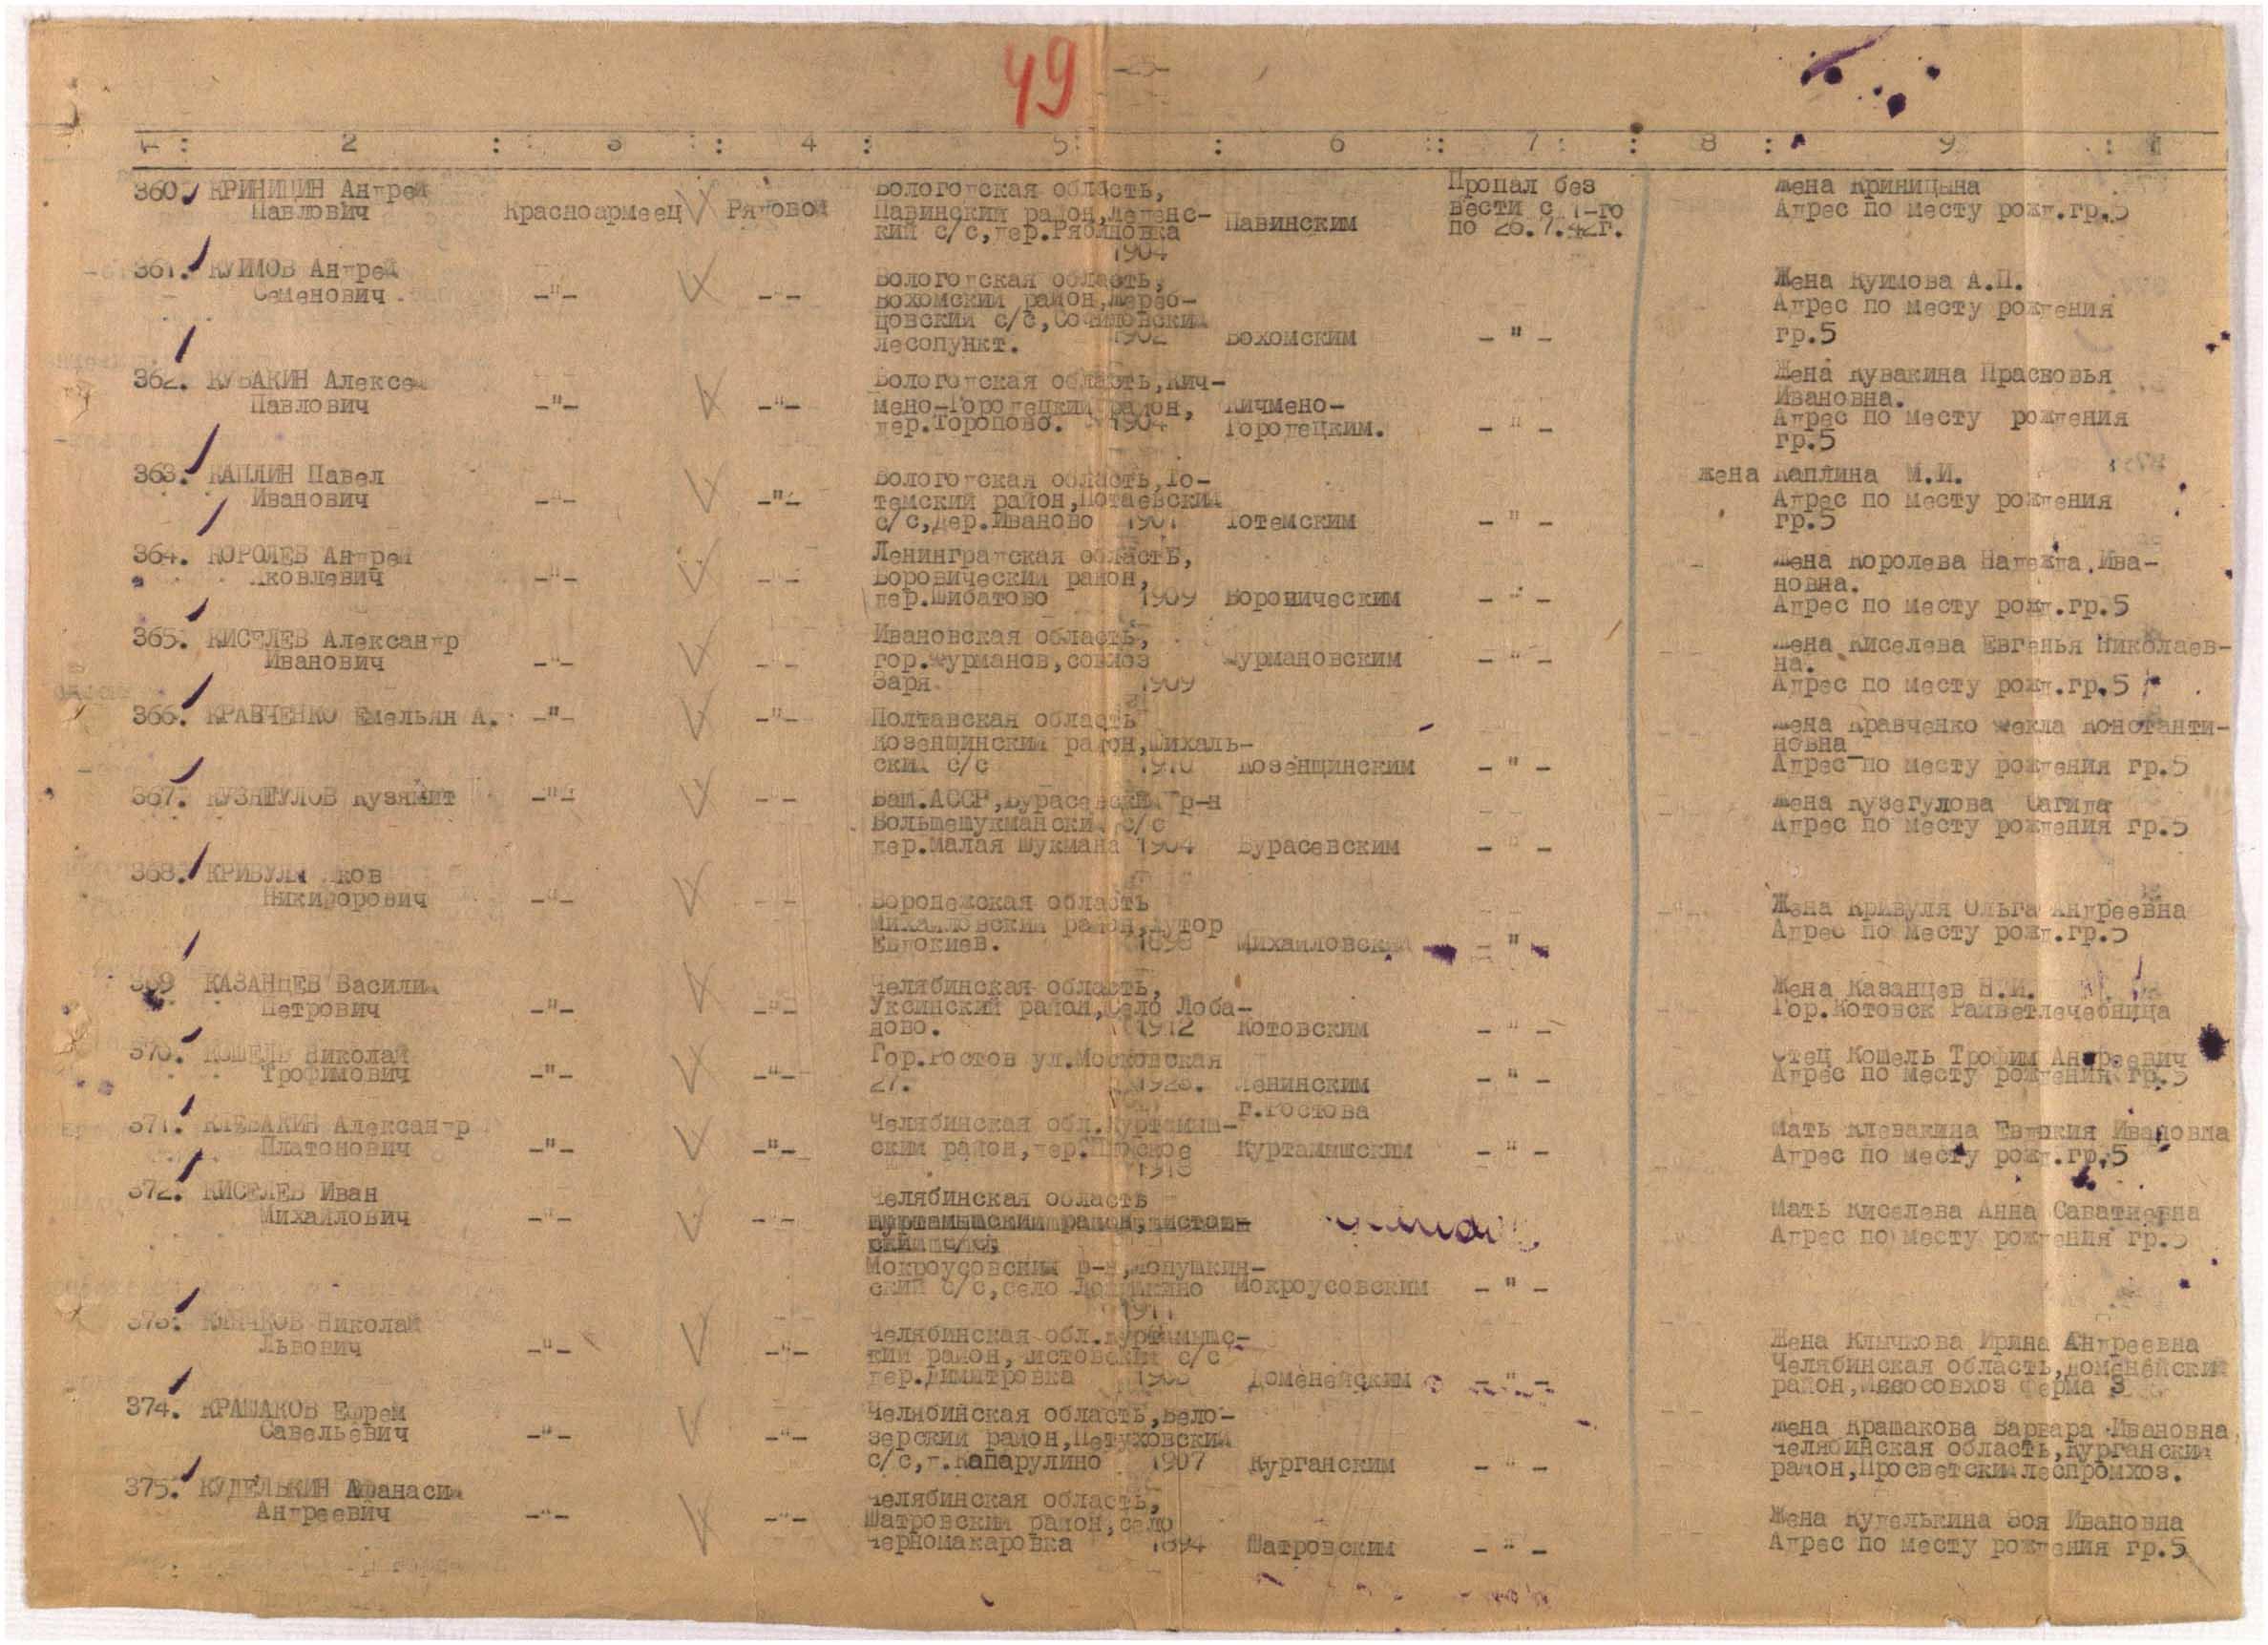 49
-25-
1 : 2 : 3 : 4 : 5 : 6 : 7 : 8 : 9 :
360. КРИНИЦИН Андрей Павлович Красноармеец Рядовой
Вологодская область,
Павинский район,
кий с/с, дер.Рябиновка
1904
Павинским
Пропал без
вести с 1-го
по 26.7.42г.
Жена Криницына
Адрес по месту рожд.гр.5
361. КУИМОВ Андрей
Семенович -"- -"-
Вологодская область,
Вохомский район,
цовский с/с,
лесопункт. 1902
Вохомским - " -
Жена Куимова А.П.
Адрес по месту рождения
гр.5
362. КУВАКИН Алексей
Павлович -"- -"-
Вологодская область, Кич-
мено-Городецкий район,
дер.Торопово. 1904
Кичмено-
Городецким. - " -
Жена Кувакина Прасковья
Ивановна.
Адрес по месту рождения
гр.5
363. КАПЛИН Павел
Иванович -"- -"-
Вологодская область, То-
темский район, Потаевский
с/с, дер.Иваново 1901
Тотемским - " -
жена Каплина М.И.
Адрес по месту рождения
гр.5
364. КОРОЛЕВ Андрей
Яковлевич -"- -"-
Ленинградская область,
Боровический район,
дер.Шибатово 1909
Боровическим - " -
Жена Королева Надежда Ива-
новна.
Адрес по месту рожд.гр.5
365. КИСЕЛЕВ Александр
Иванович -"- -"-
Ивановская область,
гор.Фурманов, совхоз
Заря. 1909
Фурмановским - " -
Жена Киселева Евгенья Николаев-
на.
Адрес по месту рожд.гр.5
366. КРАВЧЕНКО Емельян А. -"- -"-
Полтавская область
Козенщинский район,
ский с/с 1910
Козенщинским - " -
Жена Кравченко Фекла Константи-
новна
Адрес по месту рождения гр.5
367. КУЗЯГУЛОВ -"- -"-
Баш.АССР, р-н
с/с
дер.Малая Шукмана 1904
Бурасевским - " -
Жена Кузегулова Сагида
Адрес по месту рождения гр.5
368. КРИВУЛЯ Яков
Никифорович -"- -"-
Воронежская область
Михайловский район, хутор
1898
Михайловский - " -
Жена Кривуля Ольга Андреевна
Адрес по месту рожд.гр.5
369 КАЗАНЦЕВ Василий
Петрович -"- -"-
Челябинская область,
Уксинский район, село Лоба-
ново. 1912
Котовским - " -
Жена Казанцев Н.И.
Гор.Котовск Райветлечебница
370. КОШЕЛЬ Николай
Трофимович -"- -"-
Гор.Ростов ул.Московская
27.
Ленинским
г.Ростова - " -
Отец Кошель Трофим Андреевич
Адрес по месту рождения гр.5
371. КЛЕВАКИН Александр
Платонович -"- -"-
Челябинская обл. Куртамыш-
ский район, дер.
1918
Куртамышским - " -
Мать Клевакина Евдокия Ивановна
Адрес по месту рожд.гр.5
372. КИСЕЛЕВ Иван
Михайлович -"- -"-
Челябинская область
Мокроусовский р-н, Лопушкин-
ский с/с, село
1911
Мокроусовским - " -
Мать Киселева Анна
Адрес по месту рождения гр.5
373. КЛЫЧКОВ Николай
Львович -"- -"-
Челябинская обл. Куртамышс-
кий район, с/с
дер.Димитровка
Доменейским - " -
Жена Клычкова Ирина Андреевна
Челябинская область, Доменейский
район, Мясосовхоз ферма 3
374. КРАШАКОВ Ефрем
Савельевич -"- -"-
Челябинская область, Бело-
зерский район, Петуховский
с/с, д.Капарулино 1907
Курганским - " -
Жена Крашакова Варвара Ивановна
Челябинская область, Курганский
район, Просветский леспромхоз.
375. КУДЕЛЬКИН Афанасий
Андреевич -"- -"-
Челябинская область,
Шатровский район, село
Черномакаровка 1894
Шатровским - " -
Жена Куделькина Зоя Ивановна
Адрес по месту рождения гр.5